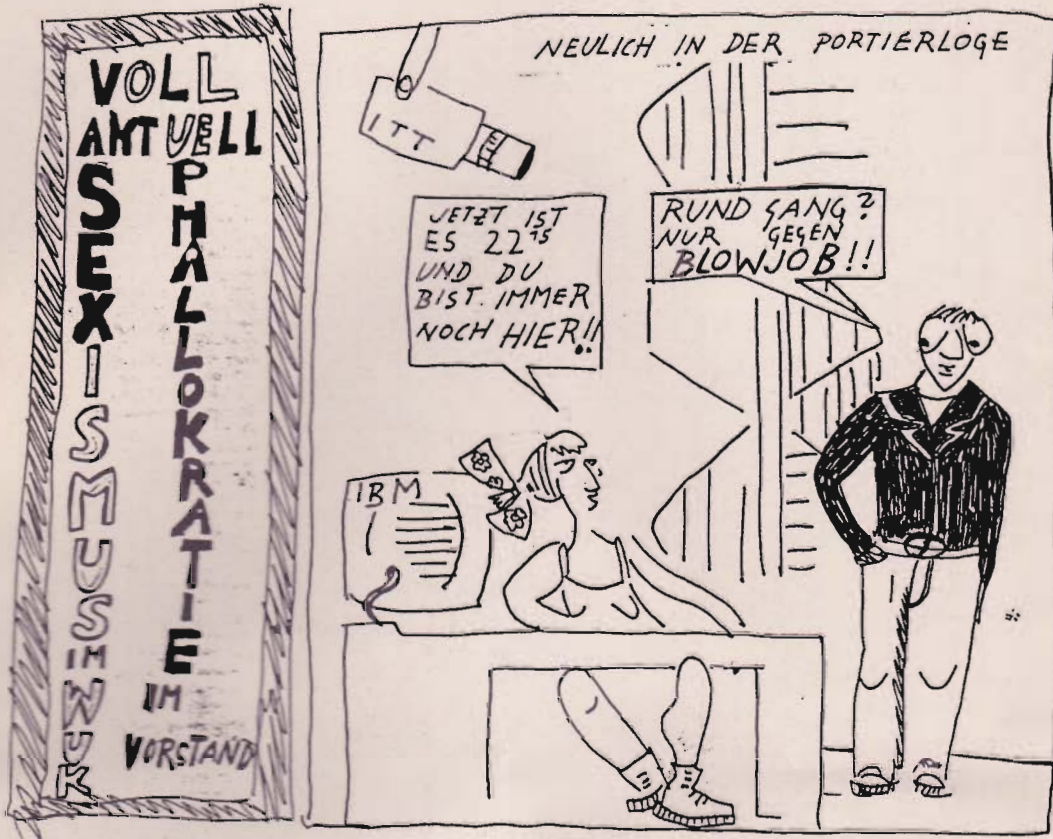 VOLL
AKTUELL
SEXISMUS IM WUK
PHALLOKRATIE
IM
VORSTAND
NEULICH IN DER PORTIERLOGE
ITT
JETZT IST
ES 22 15
UND DU
BIST IMMER
NOCH HIER!!
RUNDGANG?
NUR GEGEN
BLOWJOB!!
IBM